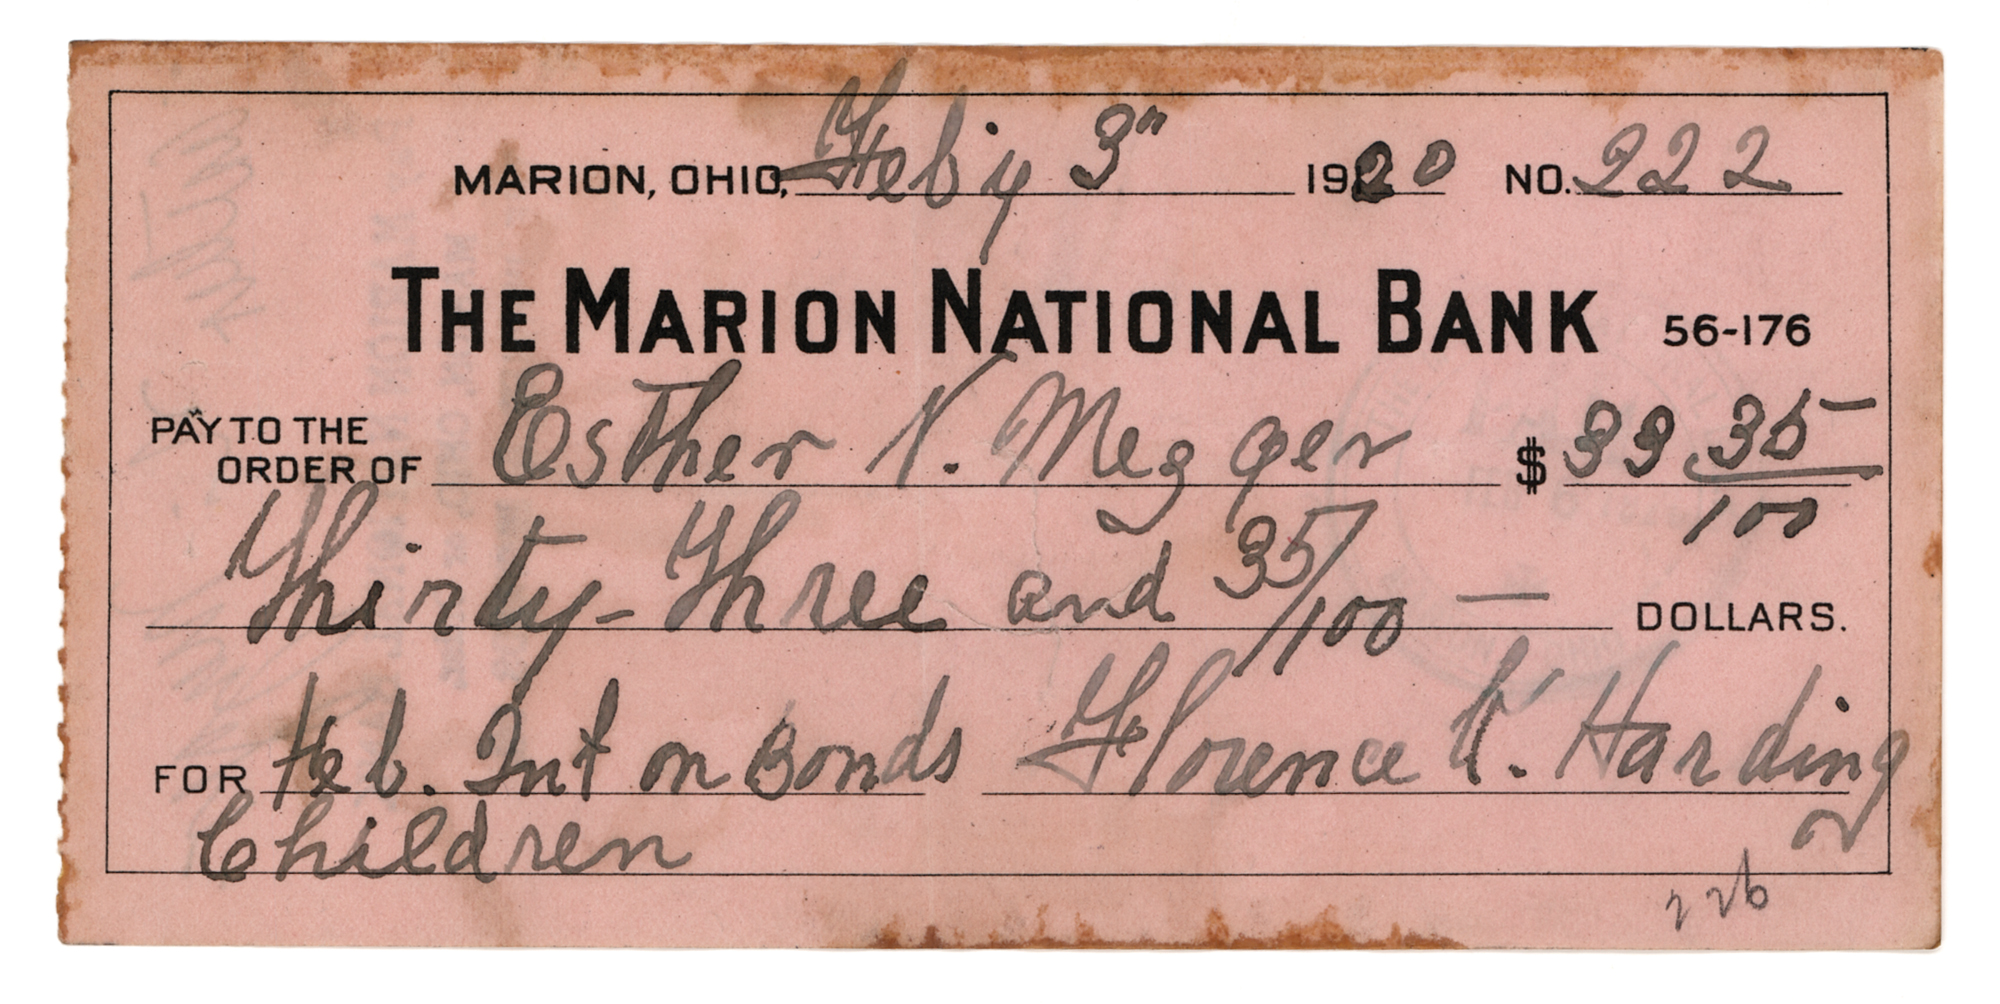 MARION, OHIO, Feb'y 3" 1920 NO. 222
THE MARION NATIONAL BANK 56-176
PAY TO THE ORDER OF Esther N. Mezger $33 35/100
Thirty-Three and 35/100 — DOLLARS.
FOR Feb. Int on Bonds Florence K. Harding
Children
226